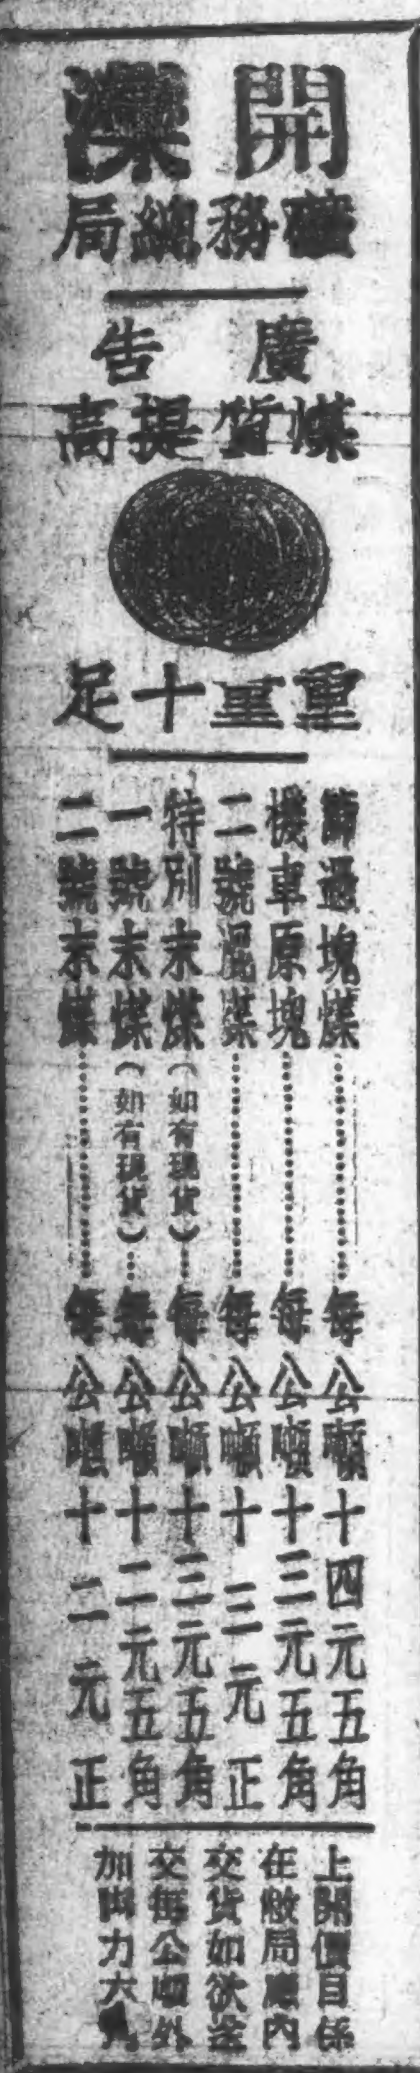 開灤
礦務總局
廣告
煤質提高
重量十足
篩過塊煤⋯⋯每公噸十四元五角
機車原塊⋯⋯每公噸十三元五角
二號混煤⋯⋯每公噸十三元正
特別末煤（如有現貨）⋯每公噸十三元五角
一號末煤（如有現貨）⋯每公噸十二元五角
二號末煤⋯⋯每公噸十二元正
上開價目係
在敝局廠內
交貨如欲送
交每公噸外
加脚力六角